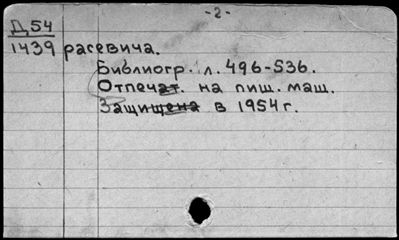 -2-
Д54
1439 расевича.
Библиогр. л. 496-536.
Отпечат. на пиш. маш.
Защищена в 1954 г.